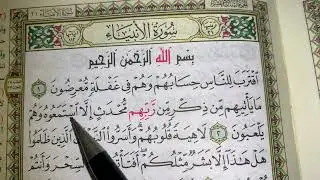 سُورَةُ الْأَنبِيَاءِ
بِسْمِ اللَّهِ الرَّحْمَٰنِ الرَّحِيمِ
اقْتَرَبَ لِلنَّاسِ حِسَابُهُمْ وَهُمْ فِي غَفْلَةٍ مُّعْرِضُونَ ١
مَا يَأْتِيهِم مِّن ذِكْرٍ مِّن رَّبِّهِم مُّحْدَثٍ إِلَّا اسْتَمَعُوهُ وَهُمْ
يَلْعَبُونَ ٢ لَاهِيَةً قُلُوبُهُمْ وَأَسَرُّوا النَّجْوَى الَّذِينَ ظَلَمُوا
هَلْ هَٰذَا إِلَّا بَشَرٌ مِّثْلُكُمْ أَفَتَأْتُونَ السِّحْرَ وَأَنتُمْ